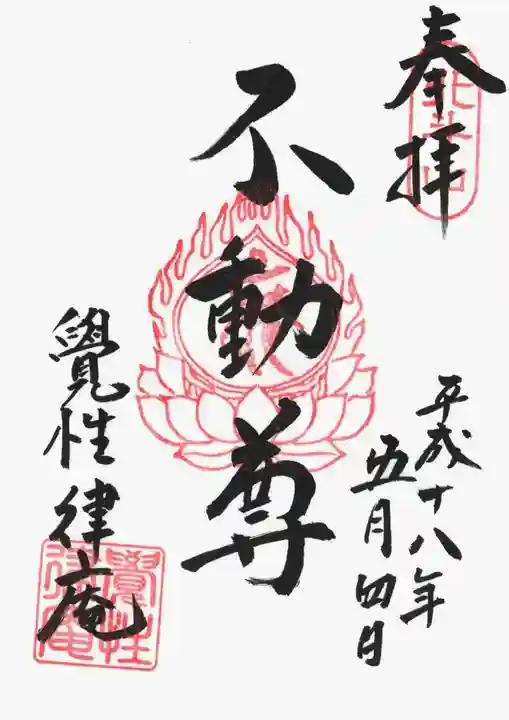 奉拝
不動尊
平成十八年
五月四日
覺性律庵
覺性
律庵